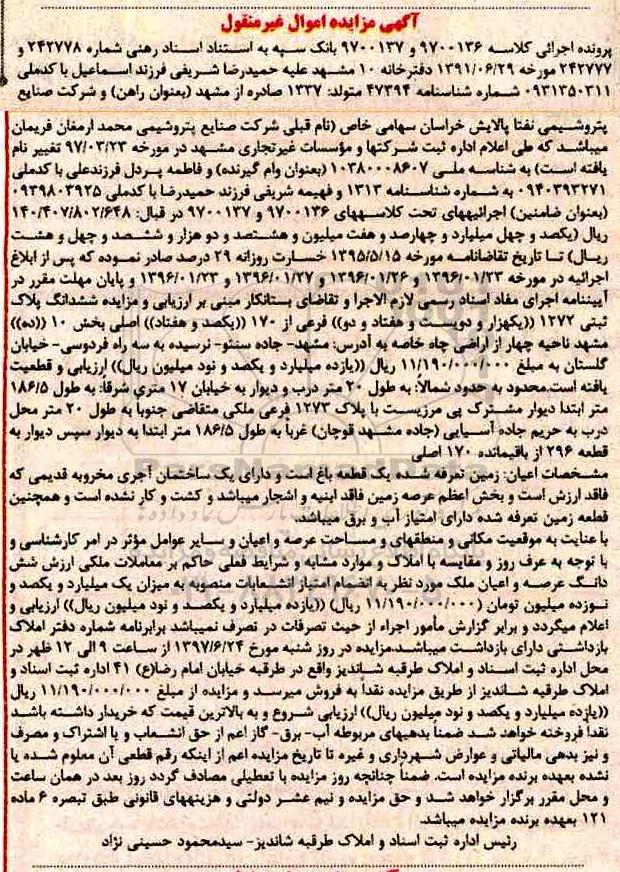 آگهی مزایده اموال غیرمنقول
پرونده اجرائی کلاسه ۹۷۰۰۱۳۶ و ۹۷۰۰۱۳۷ بانک سپه به استناد اسناد رهنی شماره ۲۴۲۷۷۸ و
۲۴۲۷۷۷ مورخه ۱۳۹۱/۰۶/۲۹ دفترخانه ۱۰ مشهد علیه حمیدرضا شریفی فرزند اسماعیل با کدملی
۰۹۳۱۳۵۰۳۱۱ شماره شناسنامه ۴۷۳۹۴ متولد: ۱۳۳۷ صادره از مشهد (بعنوان راهن) و شرکت صنایع
پتروشیمی نفتا پالایش خراسان سهامی خاص (نام قبلی شرکت صنایع پتروشیمی محمد ارمغان فریمان
میباشد که طی اعلام اداره ثبت شرکتها و مؤسسات غیرتجاری مشهد در مورخه ۹۷/۰۳/۲۳ تغییر نام
یافته است) به شناسه ملی ۱۰۳۸۰۰۰۸۶۰۷ (بعنوان وام گیرنده) و فاطمه پردل فرزندعلی با کدملی
۰۹۴۰۳۹۳۲۷۱ به شماره شناسنامه ۱۳۱۳ و فهیمه شریفی فرزند حمیدرضا با کدملی ۰۹۳۹۸۰۳۹۲۵
(بعنوان ضامنین) اجرائیههای تحت کلاسههای ۹۷۰۰۱۳۶ و ۹۷۰۰۱۳۷ در قبال: ۱۴۰/۴۰۷/۸۰۲/۶۴۸
ریال (یکصد و چهل میلیارد و چهارصد و هفت میلیون و هشتصد و دو هزار و ششصد و چهل و هشت
ریال) تا تاریخ تقاضانامه مورخه ۱۳۹۵/۵/۱۵ خسارت روزانه ۲۹ درصد صادر نموده که پس از ابلاغ
اجرائیه در مورخه ۱۳۹۶/۰۱/۲۳ و ۱۳۹۶/۰۱/۲۶ و ۱۳۹۶/۰۱/۲۷ و ۱۳۹۶/۰۱/۲۳ و پایان مهلت مقرر در
آییننامه اجرای مفاد اسناد رسمی لازم الاجرا و تقاضای بستانکار مبنی بر ارزیابی و مزایده ششدانگ پلاک
ثبتی ۱۲۷۲ ((یکهزار و دویست و هفتاد و دو)) فرعی از ۱۷۰ ((یکصد و هفتاد)) اصلی بخش ۱۰ ((ده))
مشهد ناحیه چهار از اراضی چاه خاصه به آدرس: مشهد- جاده سنتو- نرسیده به سه راه فردوسی- خیابان
گلستان به مبلغ ۱۱/۱۹۰/۰۰۰/۰۰۰ ریال ((یازده میلیارد و یکصد و نود میلیون ریال)) ارزیابی و قطعیت
یافته است.محدود به حدود شمالاً: به طول ۲۰ متر درب و دیوار به خیابان ۱۷ متری شرقاً: به طول ۱۸۶/۵
متر ابتدا دیوار مشترک پی مرزیست با پلاک ۱۲۷۳ فرعی ملکی متقاضی جنوباً به طول ۲۰ متر محل
درب به حریم جاده آسیایی (جاده مشهد قوچان) غرباً به طول ۱۸۶/۵ متر ابتدا به دیوار سپس دیوار به
قطعه ۲۹۶ از باقیمانده ۱۷۰ اصلی
مشخصات اعیان: زمین تعرفه شده یک قطعه باغ است و دارای یک ساختمان آجری مخروبه قدیمی که
فاقد ارزش است و بخش اعظم عرصه زمین فاقد ابنیه و اشجار میباشد و کشت و کار نشده است و همچنین
قطعه زمین تعرفه شده دارای امتیاز آب و برق میباشد.
با عنایت به موقعیت مکانی و منطقهای و مساحت عرصه و اعیان و سایر عوامل مؤثر در امر کارشناسی و
با توجه به عرف روز و مقایسه با املاک و موارد مشابه و شرایط فعلی حاکم بر معاملات ملکی ارزش شش
دانگ عرصه و اعیان ملک مورد نظر به انضمام امتیاز انشعابات منصوبه به میزان یک میلیارد و یکصد و
نوزده میلیون تومان (۱۱/۱۹۰/۰۰۰/۰۰۰ ریال) ((یازده میلیارد و یکصد و نود میلیون ریال)) ارزیابی و
اعلام میگردد و برابر گزارش مأمور اجراء از حیث تصرفات در تصرف نمیباشد برابرنامه شماره دفتر املاک
بازداشتی دارای بازداشت میباشد.مزایده در روز شنبه مورخ ۱۳۹۷/۶/۲۴ از ساعت ۹ الی ۱۲ ظهر در
محل اداره ثبت اسناد و املاک طرقبه شاندیز واقع در طرقبه خیابان امام رضا(ع) ۴۱ اداره ثبت اسناد و
املاک طرقبه شاندیز از طریق مزایده نقداً به فروش میرسد و مزایده از مبلغ ۱۱/۱۹۰/۰۰۰/۰۰۰ ریال
((یازده میلیارد و یکصد و نود میلیون ریال)) ارزیابی شروع و به بالاترین قیمت که خریدار داشته باشد
نقداً فروخته خواهد شد ضمناً بدهیهای مربوطه آب- برق- گاز اعم از حق انشعاب و یا اشتراک و مصرف
و نیز بدهی مالیاتی و عوارض شهرداری و غیره تا تاریخ مزایده اعم از اینکه رقم قطعی آن معلوم شده یا
نشده بعهده برنده مزایده است. ضمناً چنانچه روز مزایده با تعطیلی مصادف گردد روز بعد در همان ساعت
و محل مقرر برگزار خواهد شد و حق مزایده و نیم عشر دولتی و هزینههای قانونی طبق تبصره ۶ ماده
۱۲۱ بعهده برنده مزایده میباشد.
رئیس اداره ثبت اسناد و املاک طرقبه شاندیز- سیدمحمود حسینی نژاد